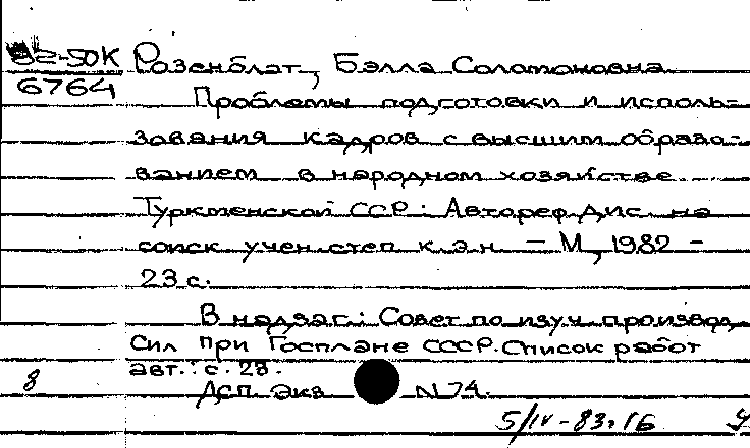 82-50К Розенблат, Бэлла Соломоновна
6764
Проблемы подготовки и исполь-
зования кадров с высшим образо-
ванием в народном хозяйстве
Туркменской ССР: Автореф. дис. на
соиск. учен. степ. к. э. н. – М, 1982 –
23 с.
В надзаг.: Совет по изуч. производ.
Сил при Госплане СССР. Список работ
авт.: с. 23.
8
ДСП. Экз N 74.
5/IV-83. 16